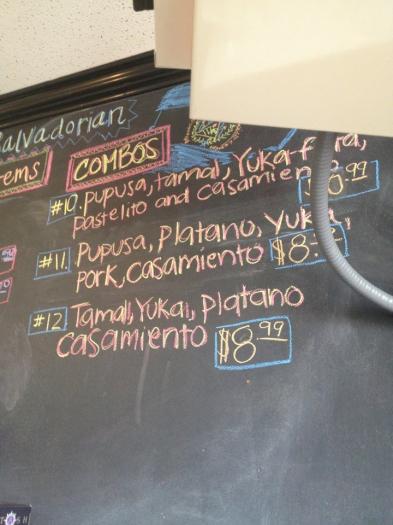 Salvadorian
COMBOS
#10. pupusa, tamal, Yuka
pastelito and casamien
#11. Pupusa, Platano, Yuka,
pork, casamiento $8.
#12 Tamal, Yuka, Platano
casamiento $8.99